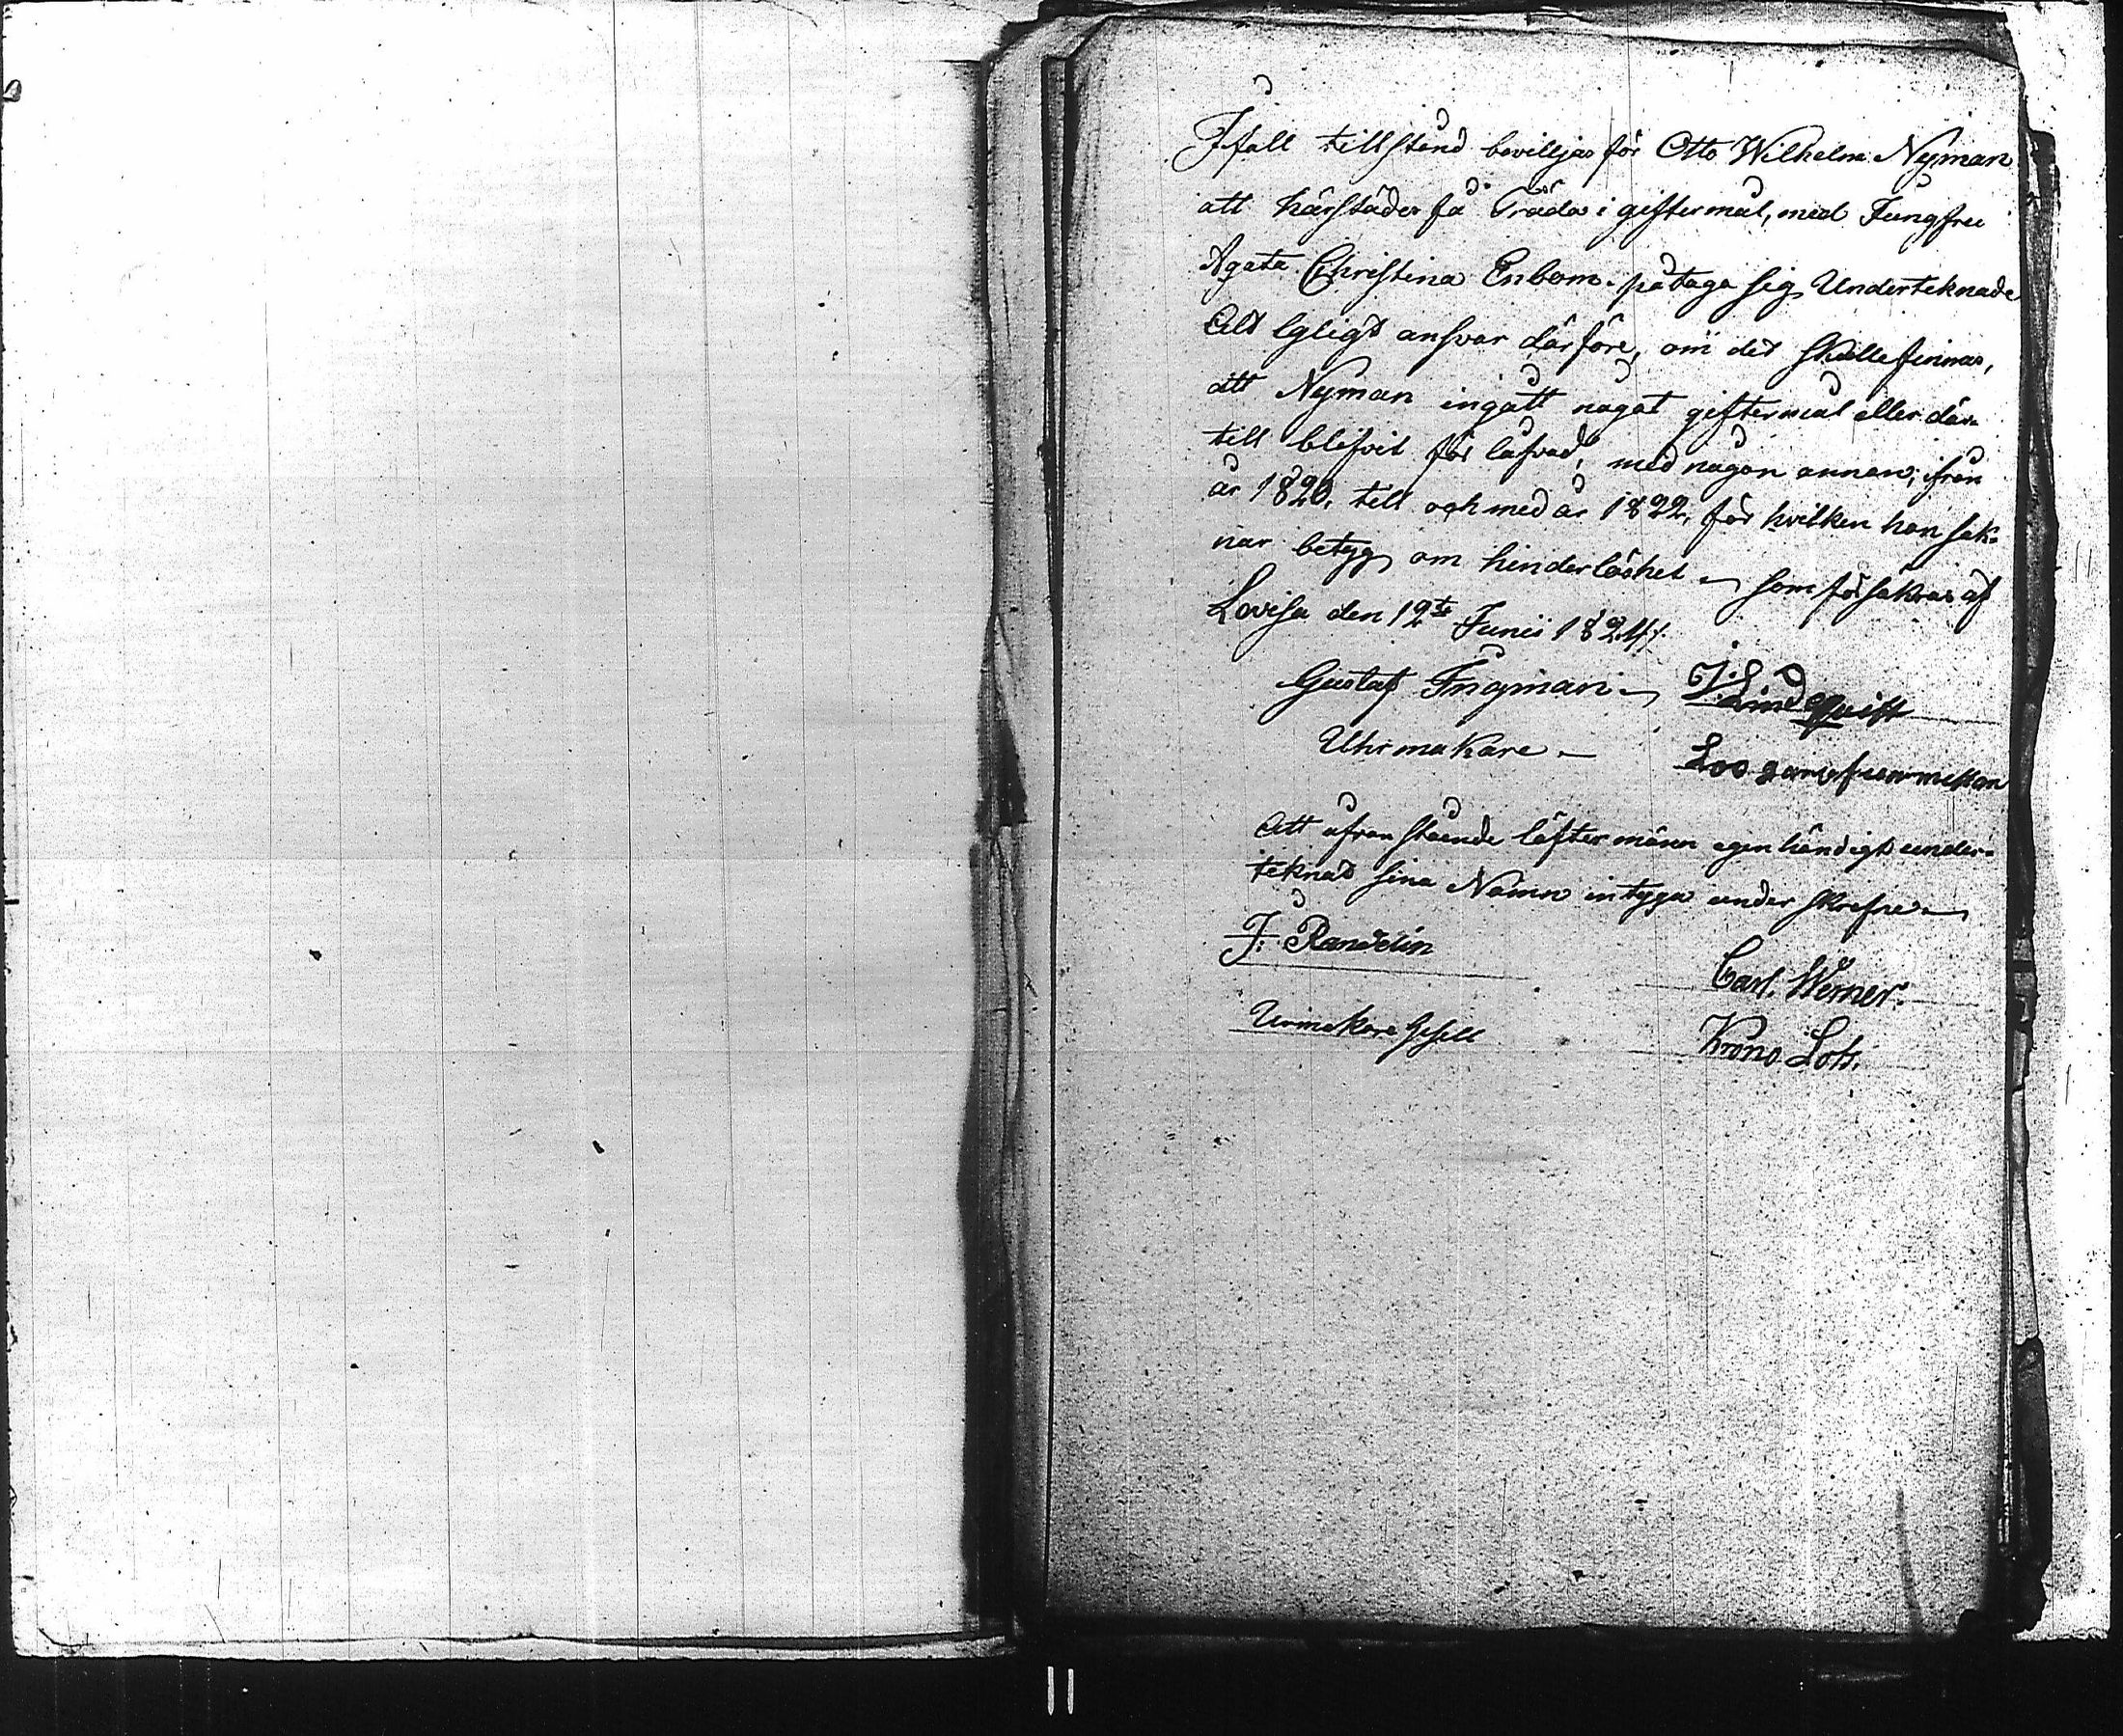 Ifall tillstånd bevilljas för Otto Wilhelm Nyman
att härstädes få Träda i giftermål, med Jungfru
Agata Christina Enbom. påtaga sig Underteknade
Alt lgligt ansvar därföre, om det skulle finnas,
att Nyman ingått något giftermål eller där-
till blifvit för låfvad, med någon annan, ifrån
år 1820, till och med år 1822, för hvilken han sak-
nar betyg om hinderlöshet – som försäkras af
Lovisa den 12te Junii 1824./.
Gustaf Ingman – J: Lindquist
Uhrmakare –
Att ofvan stående löftes männ egen händigt under-
teknad sina Namn intyga under skrefne –
F: Randelin
Carl. Werner.
Urmakare Gesell
Krono Lots.